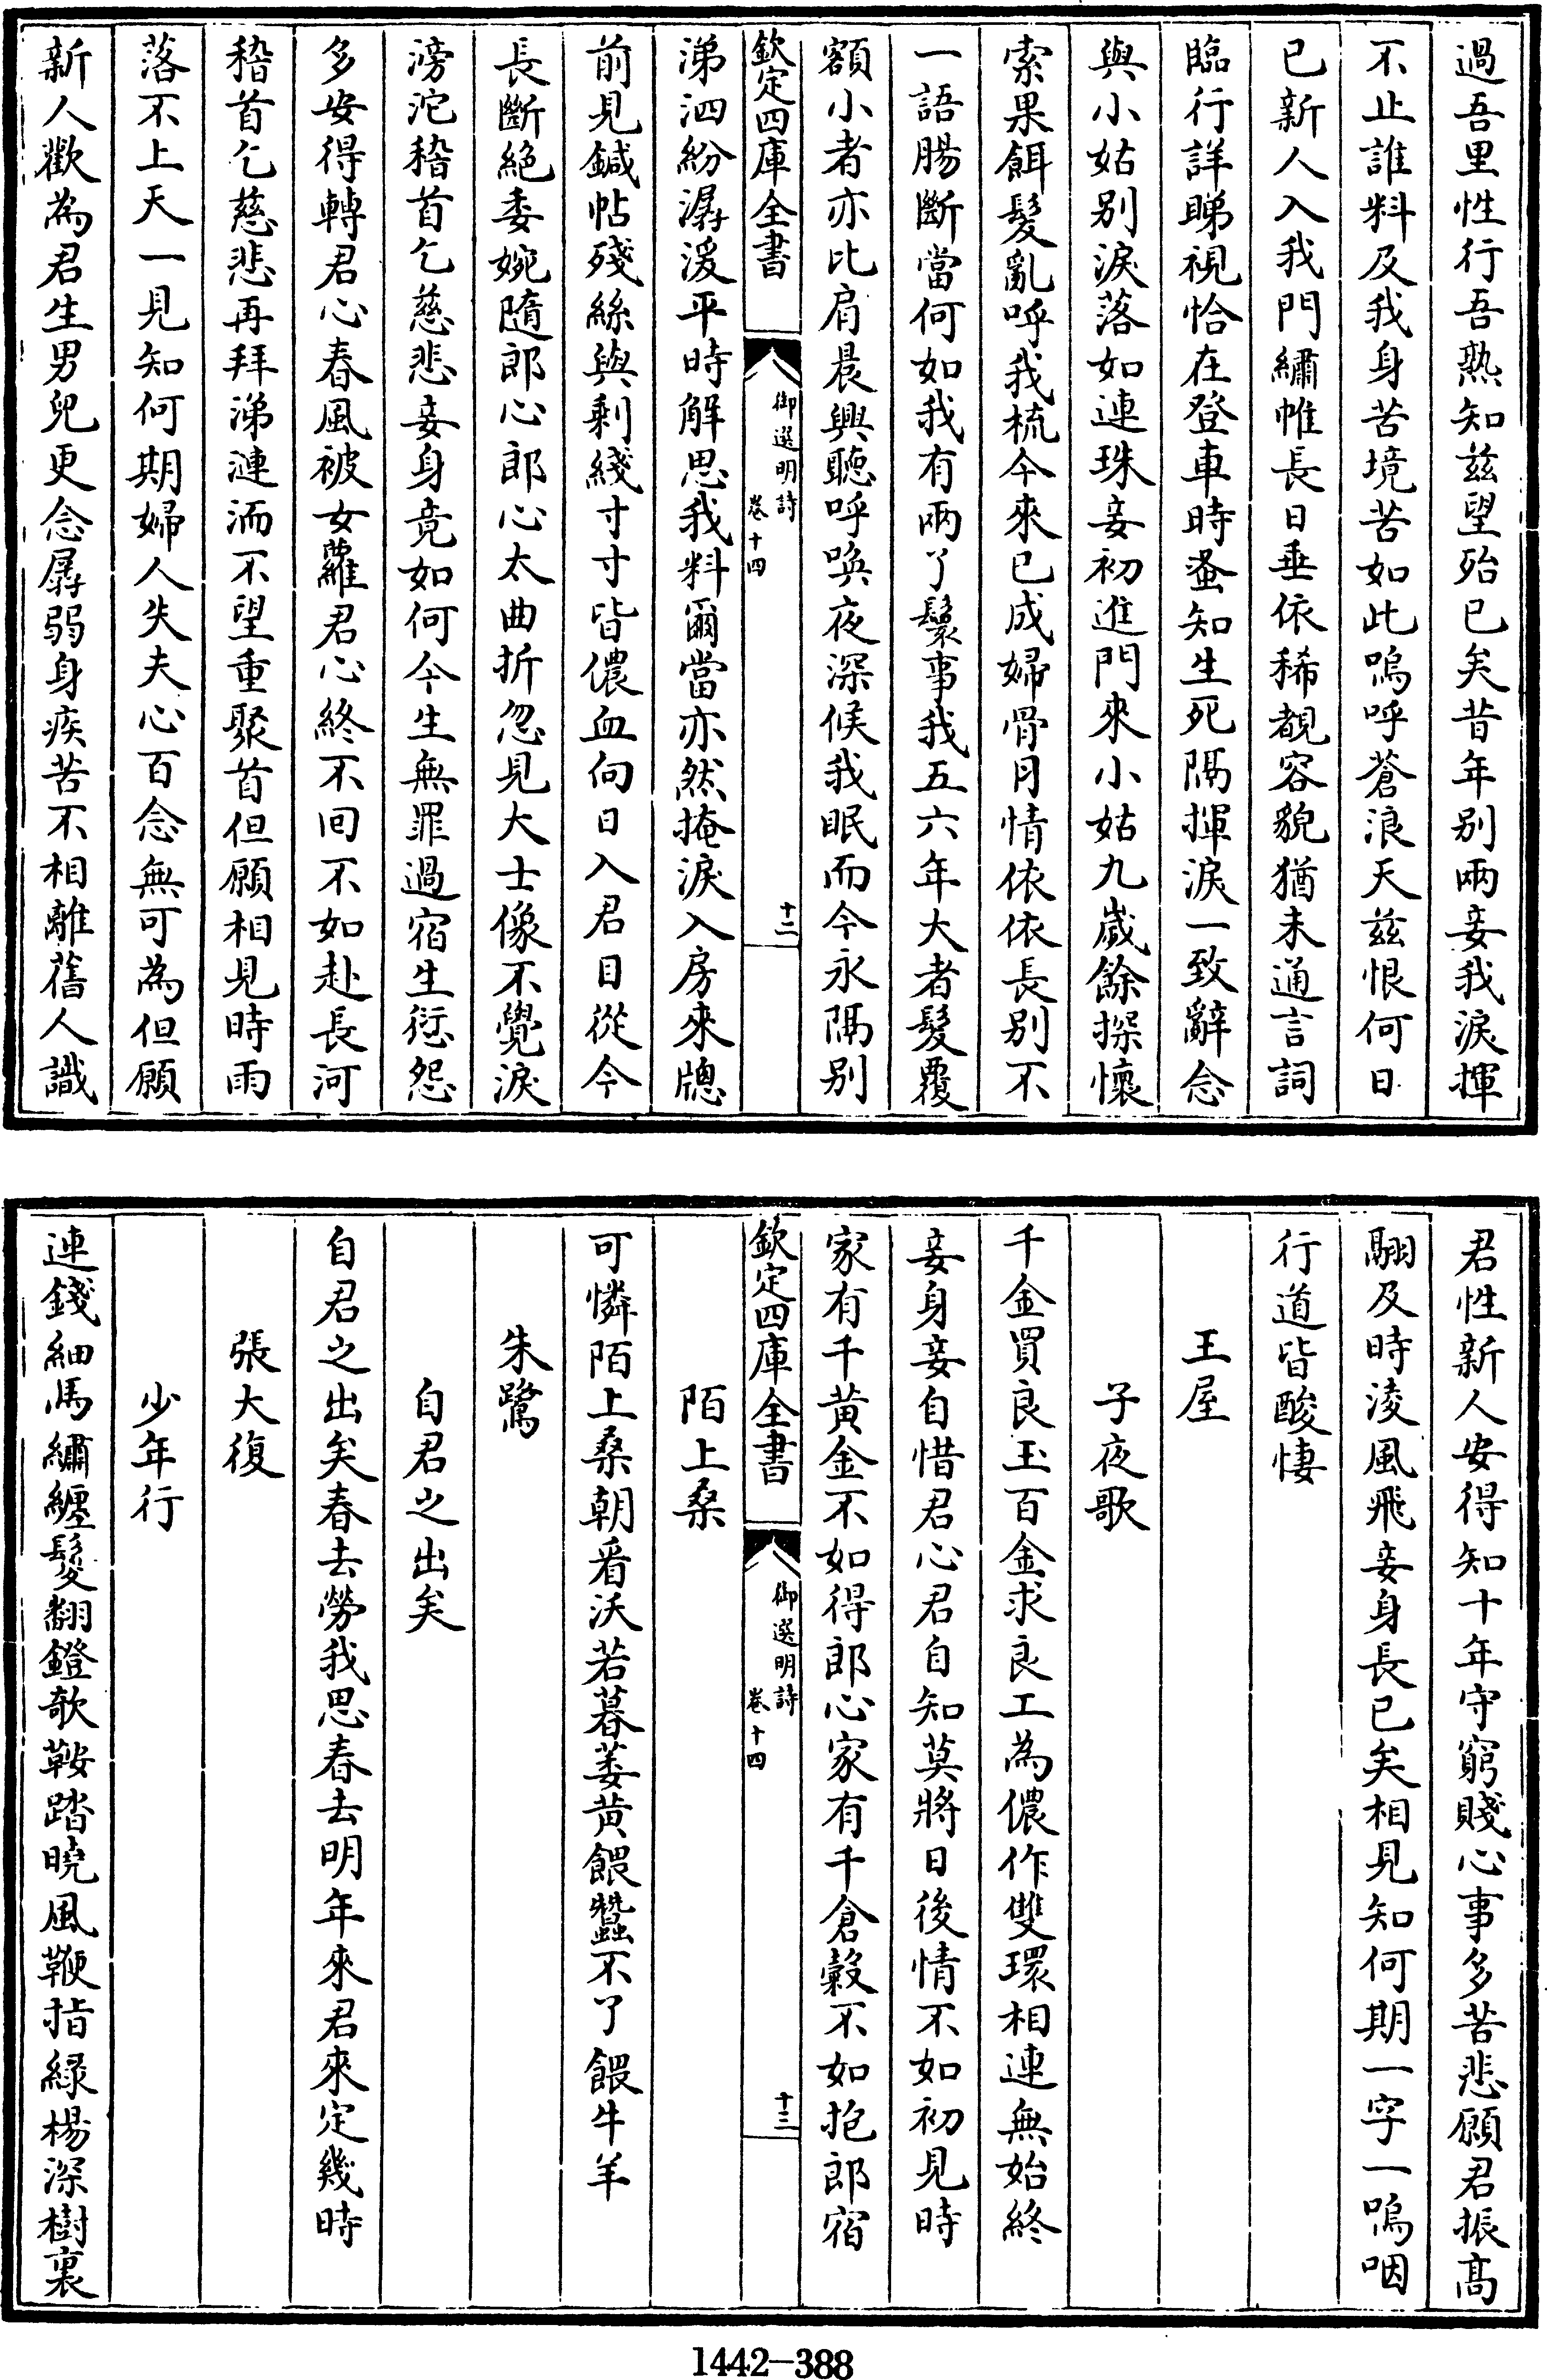 過吾里性行吾熟知兹望殆已矣昔年别兩妾我淚揮
不止誰料及我身苦境苦如此嗚呼蒼浪天兹恨何日
已新人入我門繡帷長日垂依稀覩容貌猶未通言詞
臨行詳睇視恰在登車時蚤知生死隔揮淚一致辭念
與小姑别淚落如連珠妾初進門來小姑九歲餘探懷
索果餌髮亂呼我梳今來已成婦骨月情依依長别不
一語腸斷當何如我有兩丫鬟事我五六年大者髮覆
額小者亦比肩晨興聽呼喚夜深候我眠而今永隔别
欽定四庫全書
御選明詩
卷十四
十二
涕泗紛潺湲平時解思我料爾當亦然掩淚入房來牕
前見鍼帖殘絲與剩綫寸寸皆儂血向日入君目從今
長斷絶委婉隨郎心郎心太曲折忽見大士像不覺淚
滂沱稽首乞慈悲妾身竟如何今生無罪過宿生愆怨
多安得轉君心春風被女蘿君心終不回不如赴長河
稽首乞慈悲再拜涕漣洏不望重聚首但願相見時雨
落不上天一見知何期婦人失夫心百念無可為但願
新人歡為君生男兒更念孱弱身疾苦不相離舊人識
君性新人安得知十年守窮賤心事多苦悲願君振髙
翮及時淩風飛妾身長已矣相見知何期一字一嗚咽
行道皆酸悽
王屋
子夜歌
千金買良玉百金求良工為儂作雙環相連無始終
妾身妾自惜君心君自知莫將日後情不如初見時
家有千黄金不如得郎心家有千倉穀不如抱郎宿
欽定四庫全書
御選明詩
卷十四
十三
陌上桑
可憐陌上桑朝看沃若暮萎黄餵蠶不了餵牛羊
朱鷺
自君之出矣
自君之出矣春去勞我思春去明年來君來定幾時
張大復
少年行
連錢細馬繡纏鬉翻鐙欹鞍踏曉風鞭指緑楊深樹裏
1442-388